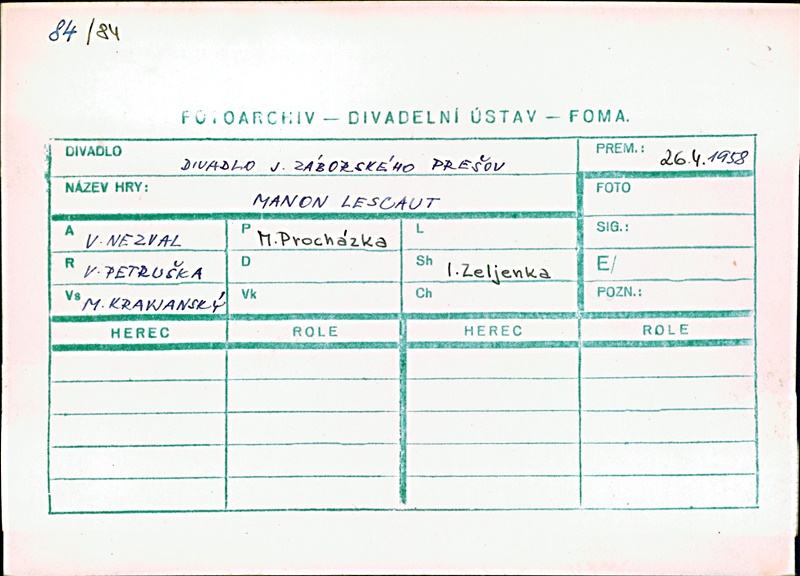 84/84
FOTOARCHIV — DIVADELNÍ ÚSTAV — FOMA.
DIVADLO DIVADLO J. ZÁBORSKÉHO PREŠOV PREM.: 26.4.1958
NÁZEV HRY: MANON LESCAUT FOTO
A V. NEZVAL P M. Procházka L SIG.:
R V. PETRUŠKA D Sh I. Zeljenka E/
Vs M. KRAVJANSKÝ Vk Ch POZN.:
HEREC ROLE HEREC ROLE